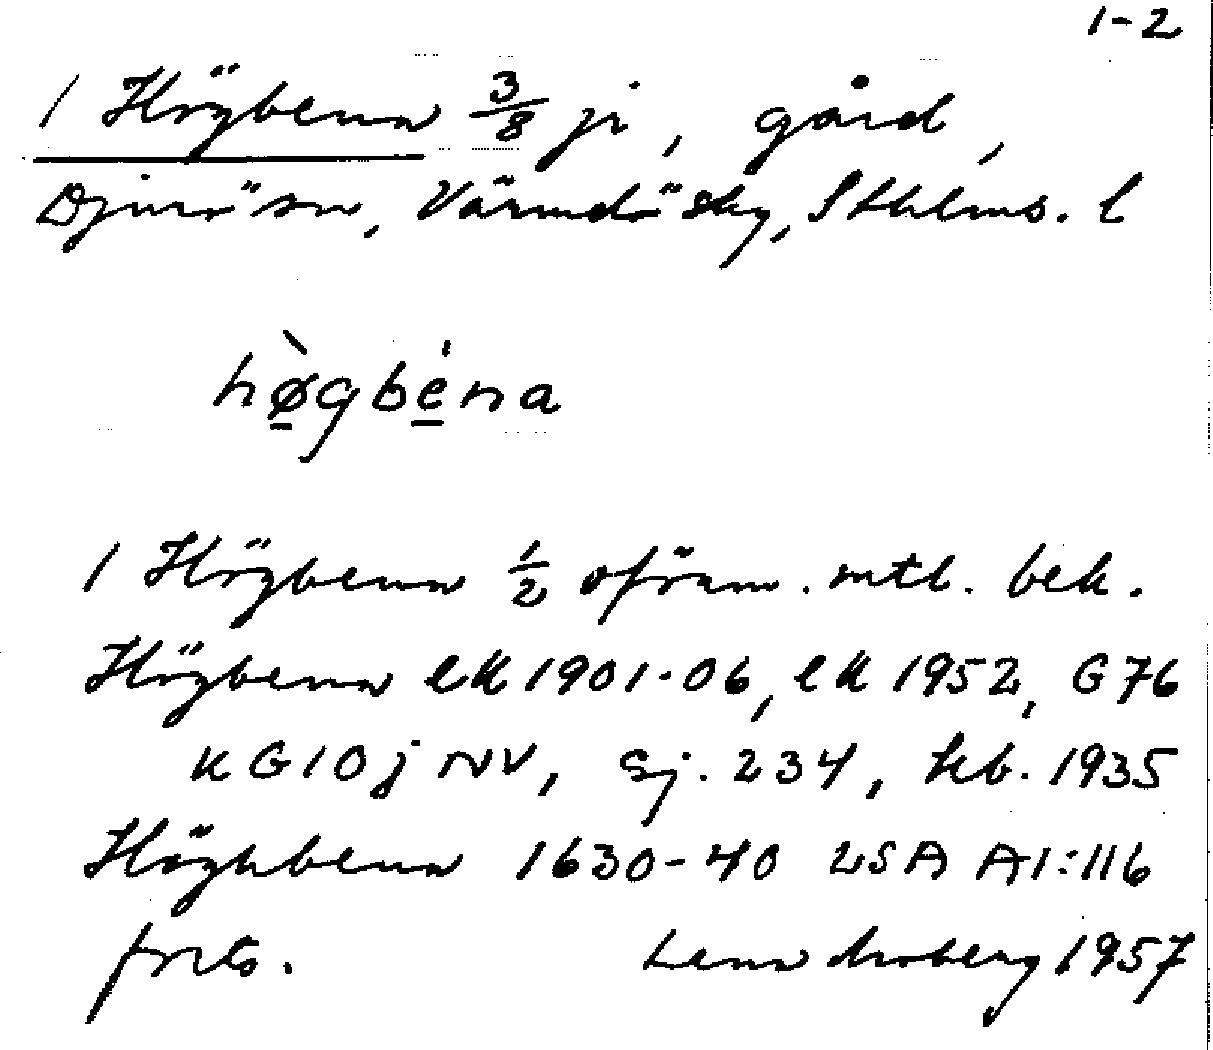 1-2
1 Högbena 3/8 ji, gård,
Djurö sn, Värmdö sky, Sthlms. l
hø̀gbéna
1 Högbena 1/2 oförm. mtl. bek.
Högbena EK 1901-06, EK 1952, G76
KG 10j NV, Sj. 234, hb. 1935
Höghbena 1630-40 LSA A1:116
forts. Lena Moberg 1957